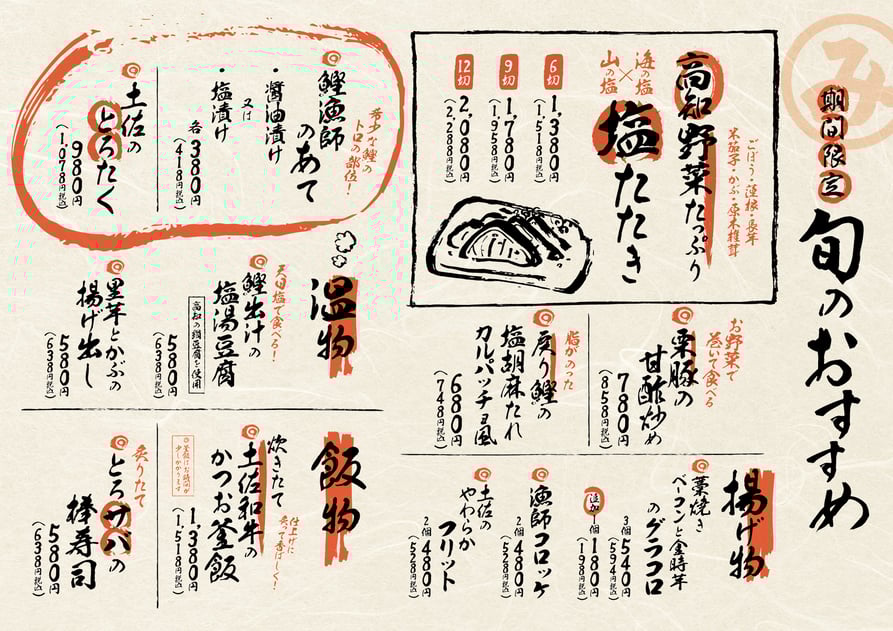 み
期間限定
旬のおすすめ
ごぼう・蓮根・長芋
米茄子・かぶ・原木椎茸
高知野菜たっぷり
塩たたき
海の塩
×
山の塩
6切
1,380円
(1,518円税込)
9切
1,780円
(1,958円税込)
12切
2,080円
(2,288円税込)
希少な鰹の
トロの部位!
鰹漁師
のあて
・醤油漬け
又は
・塩漬け
各380円
(418円税込)
土佐の
とろたく
980円
(1,078円税込)
お野菜で
巻いて食べる
栗豚の
甘酢炒め
780円
(858円税込)
脂がのった
戻り鰹の
塩胡麻たれ
カルパッチョ風
680円
(748円税込)
温物
天日塩で食べる!
鰹出汁の
塩湯豆腐
高知の絹豆腐を使用
580円
(638円税込)
里芋とかぶの
揚げ出し
580円
(638円税込)
揚げ物
藁焼き
ベーコンと金時芋
のグラコロ
3個540円
(594円税込)
追加
1個180円
(198円税込)
漁師コロッケ
2個480円
(528円税込)
土佐の
やわらか
フリット
2個480円
(528円税込)
飯物
炊きたて
仕上げに
炙って香ばしく!
土佐和牛の
かつお釜飯
※釜飯はお時間が
少しかかります
1,380円
(1,518円税込)
炙りたて
とろサバの
棒寿司
580円
(638円税込)